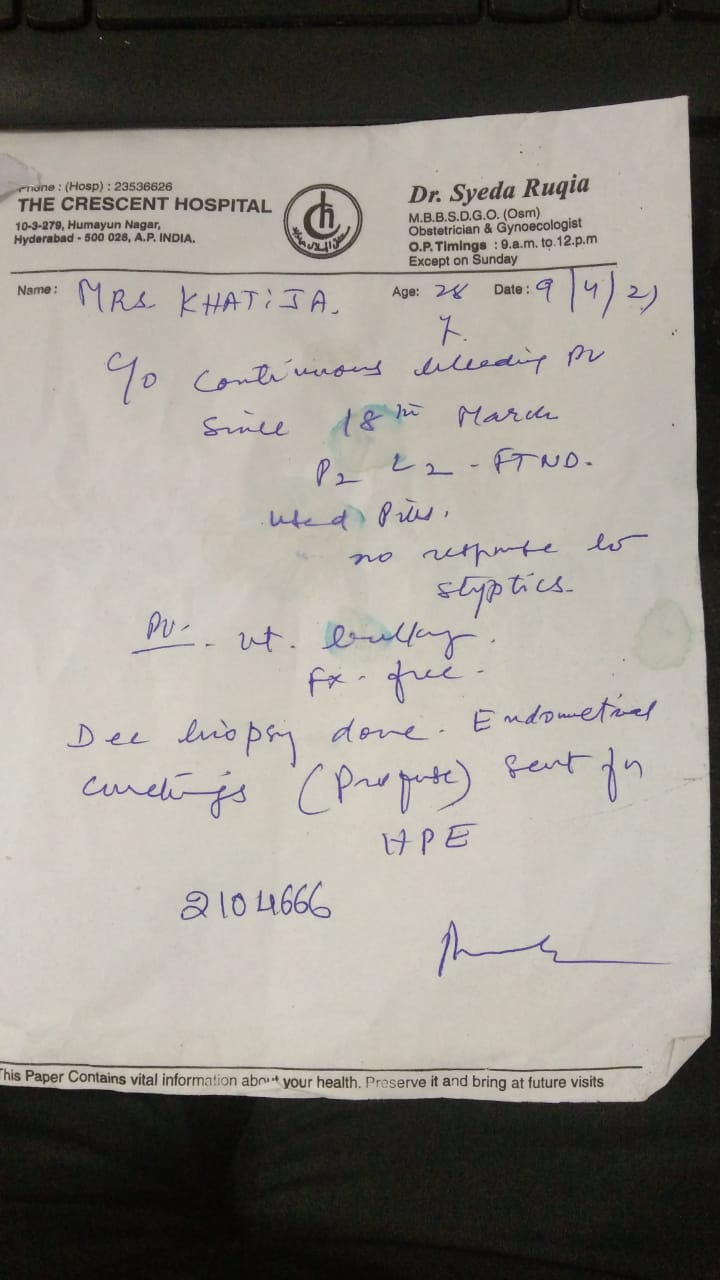 Phone : (Hosp) : 23536626
THE CRESCENT HOSPITAL
10-3-279, Humayun Nagar,
Hyderabad - 500 028, A.P. INDIA.
Dr. Syeda Ruqia
M.B.B.S.D.G.O. (Osm)
Obstetrician & Gynoecologist
O.P. Timings : 9.a.m. to.12.p.m
Except on Sunday
Name : MRS. KHATIJA. Age: 28 Date : 9/4/21
y.
c/o continuous bleeding PV
since 18th March
P2 L2 - FTND.
used Pills.
no response to
styptics.
PV. - ut. bulky.
Fx - free -
D&C biopsy done. Endometrial
curettings (Profuse) sent for
HPE
2104666
This Paper Contains vital information about your health. Preserve it and bring at future visits